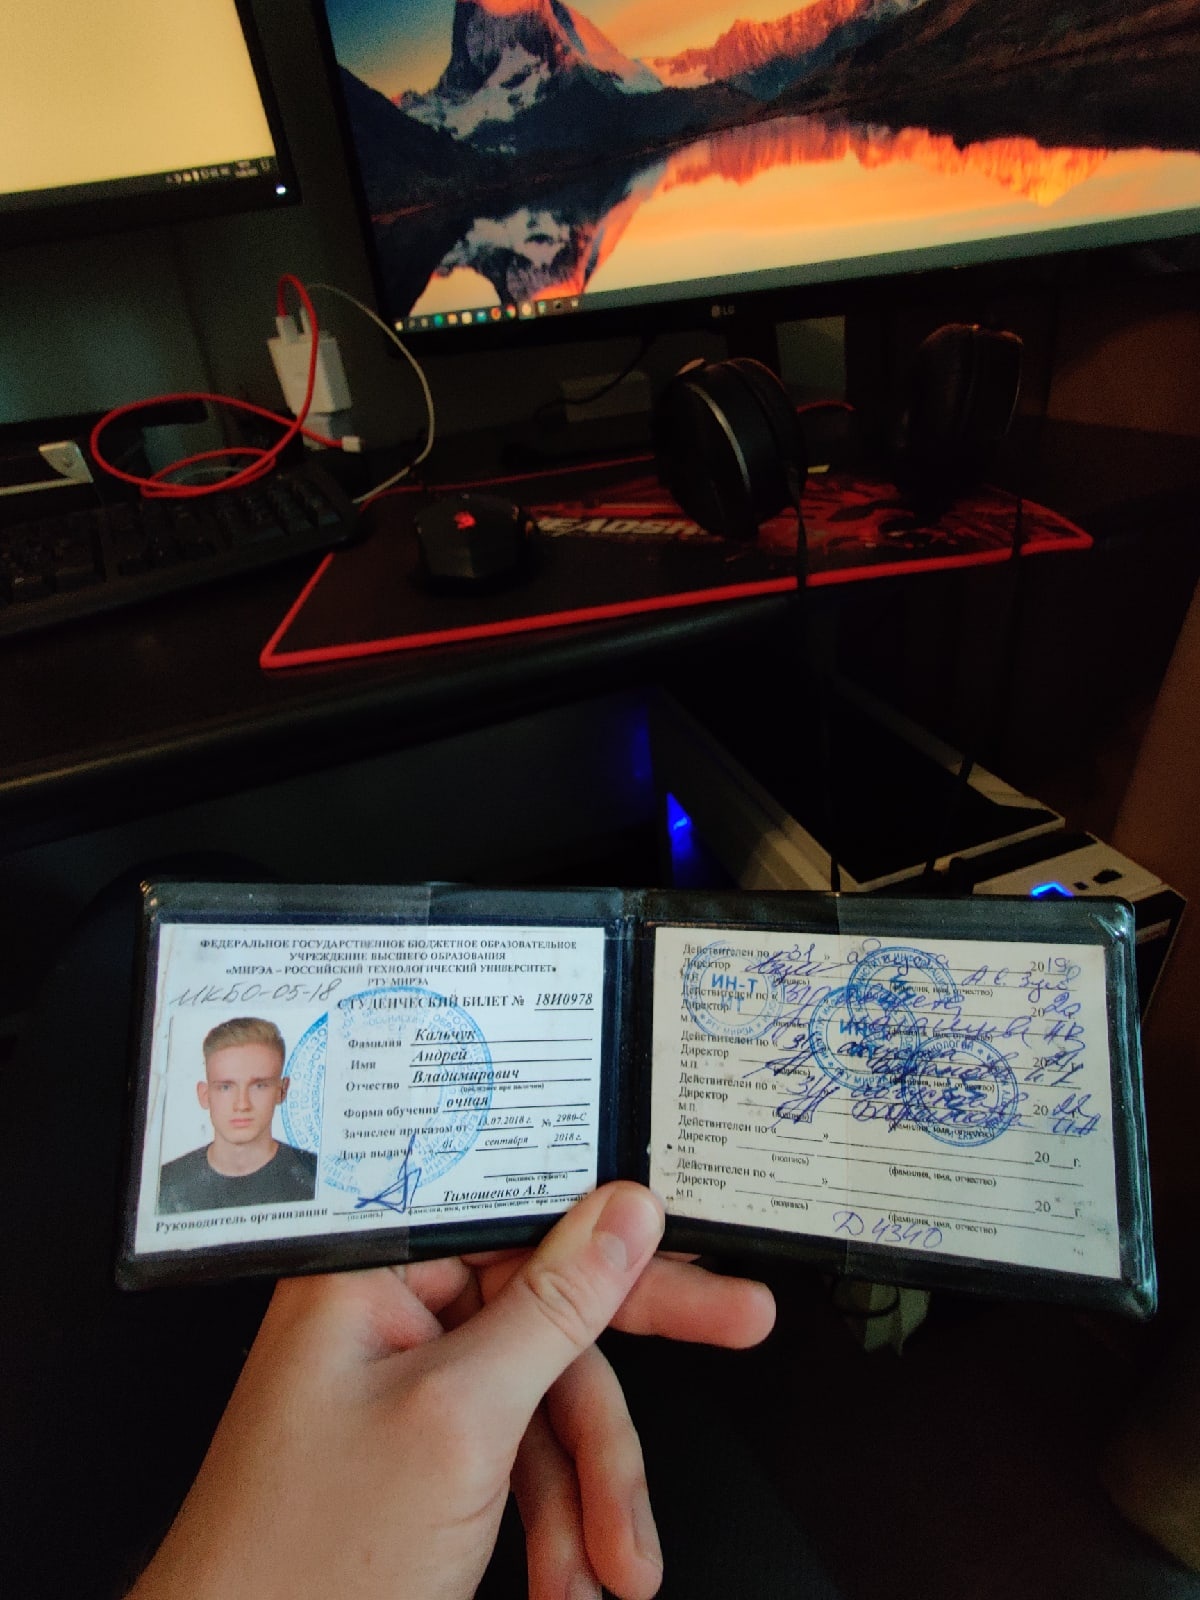 LG
HEADSH
ФЕДЕРАЛЬНОЕ ГОСУДАРСТВЕННОЕ БЮДЖЕТНОЕ ОБРАЗОВАТЕЛЬНОЕ
УЧРЕЖДЕНИЕ ВЫСШЕГО ОБРАЗОВАНИЯ
«МИРЭА – РОССИЙСКИЙ ТЕХНОЛОГИЧЕСКИЙ УНИВЕРСИТЕТ»
РТУ МИРЭА
ИКБО-05-18
СТУДЕНЧЕСКИЙ БИЛЕТ № 18И0978
Фамилия Кальчук
Имя Андрей
Отчество Владимирович
(последнее при наличии)
Форма обучения очная
Зачислен приказом от 13.07.2018 г. № 2980-С
Дата выдачи 01 сентября 2018 г.
(подпись студента)
Тимошенко А.В.
Руководитель организации
(подпись) фамилия, имя, отчество (последнее - при наличии)
Действителен по «31» августа 2019
Директор А.В. Зуев
М.П. (подпись) (фамилия, имя, отчество)
ИН-Т
РТУ МИРЭА
Действителен по «31 20 20
Директор
М.П. (подпись)
Действителен по «31 августа 20 21
Директор
М.П. (фамилия, имя, отчество)
Действителен по «31 августа 20 22
Директор
М.П. (подпись) (фамилия, имя, отчество)
Действителен по «___» 20___г.
Директор
М.П. (подпись) (фамилия, имя, отчество)
Действителен по «___» 20___г.
Директор
М.П. (подпись) (фамилия, имя, отчество)
Д 4340